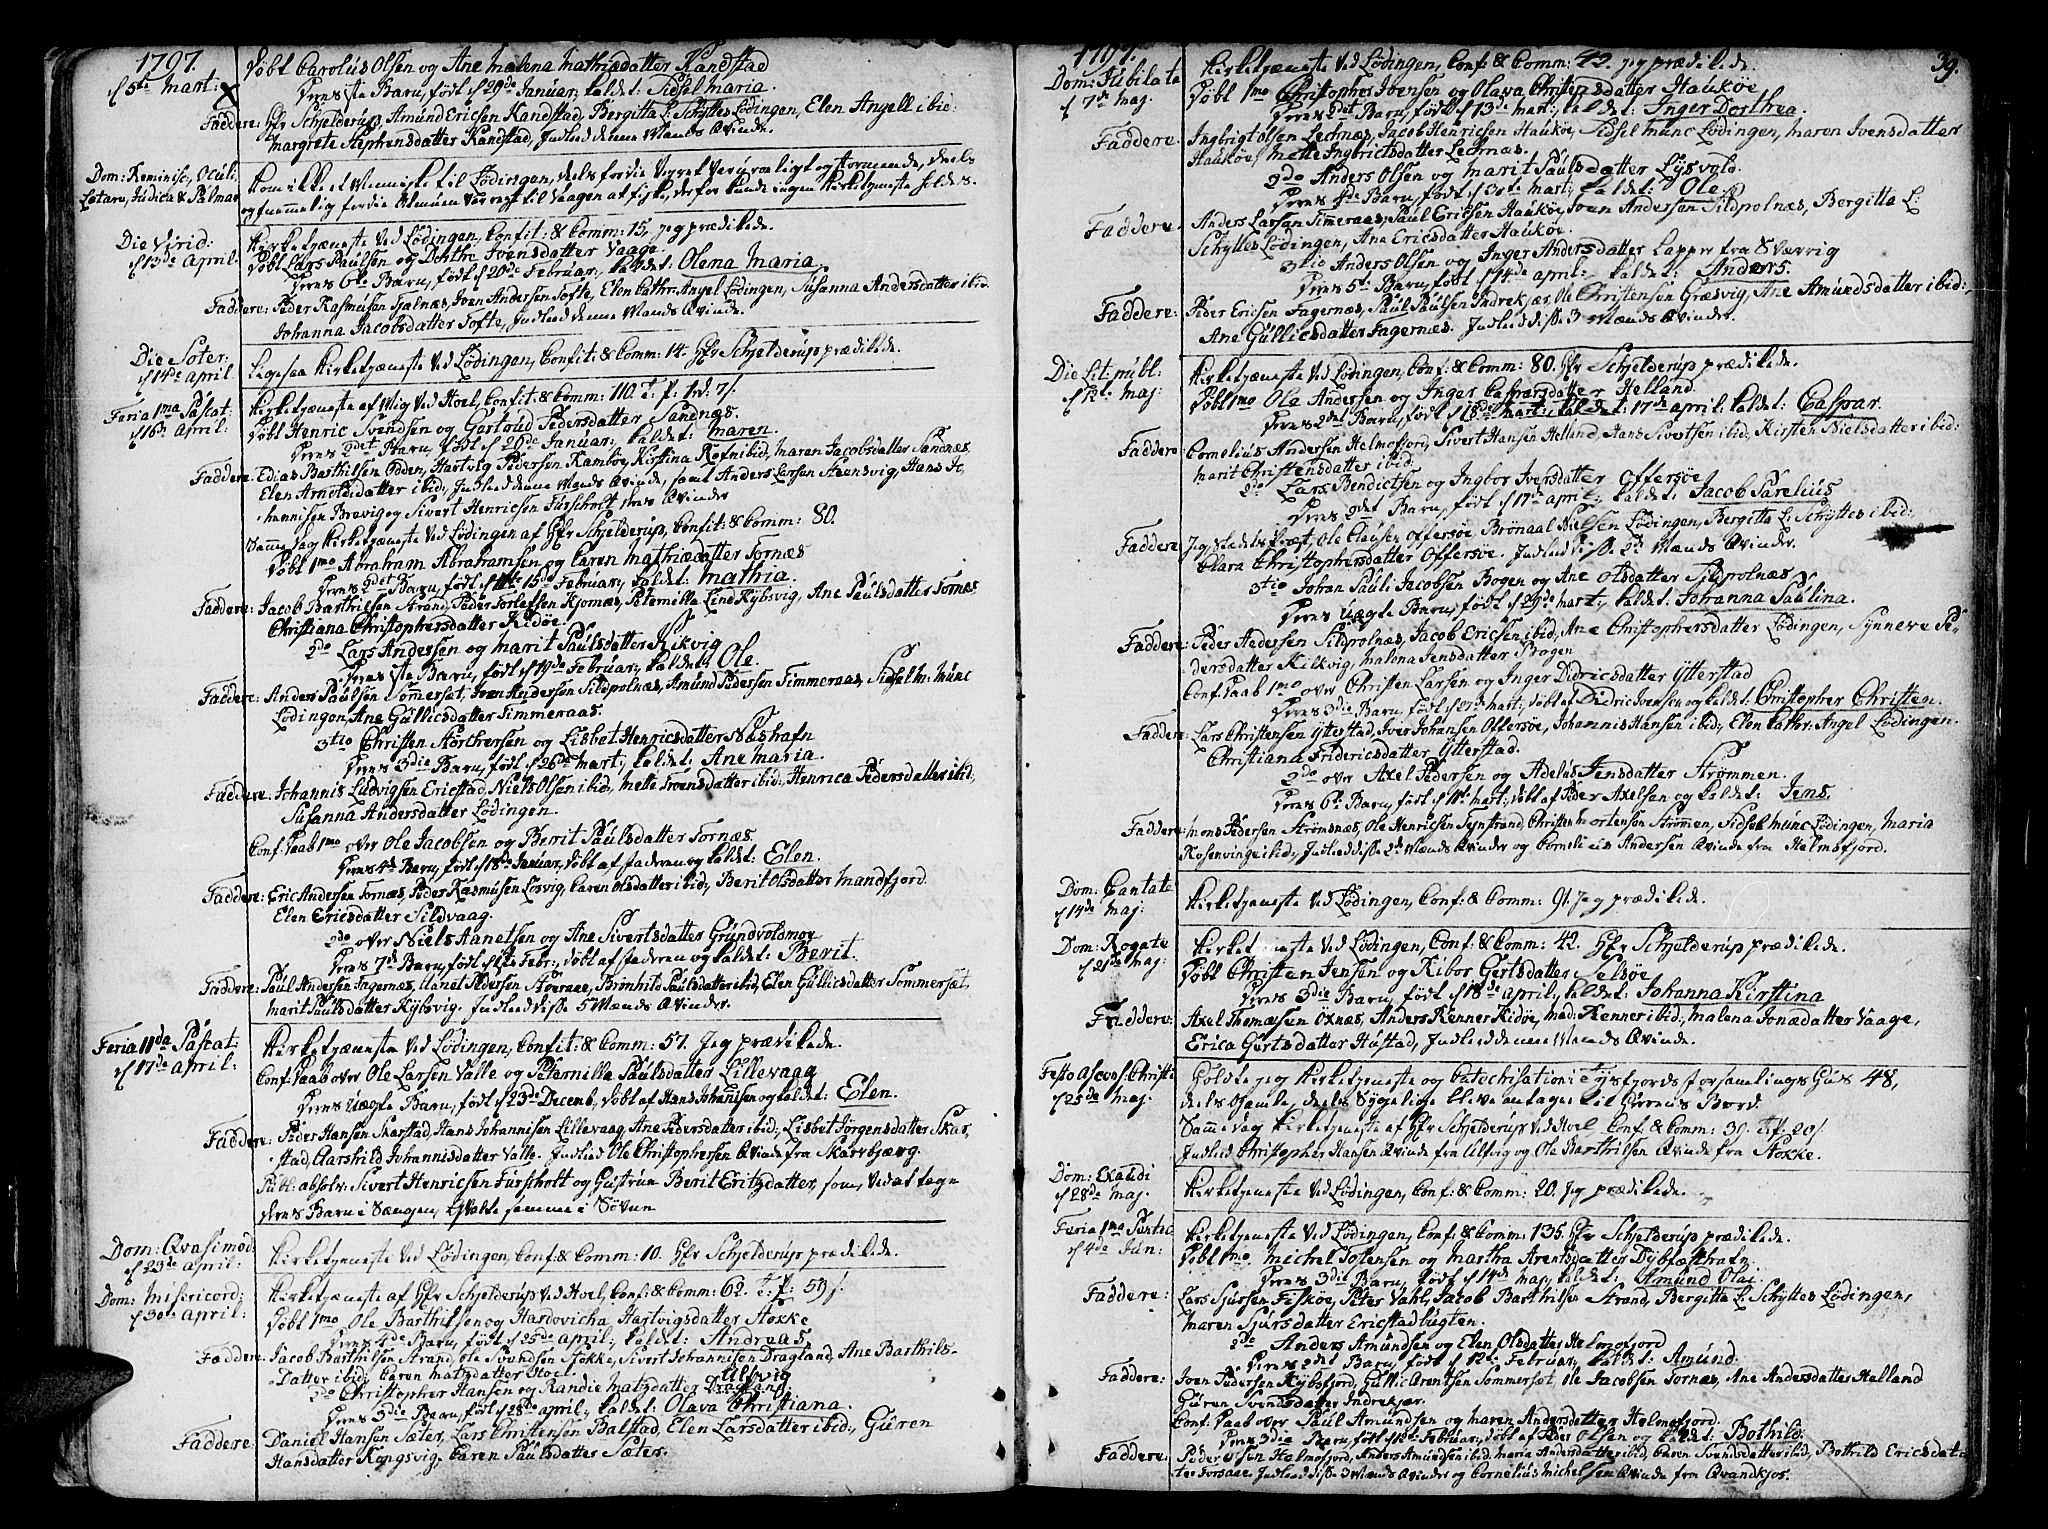 1797.
d 5te Mart:
Døbt Carolus Olsen og Ane Malena Mathiædatter Kandstad
Deres 1ste Barn, født d 29de Januar; kaldet: Sidsel Maria.
Faddere: Hr Schjelderup, Amund Ericsen Kandstad, Bergitta L: Schyttes Lødingen, Elen Angell ibid:
Margrete Stephensdatter Kandstad, Indled denne Mands Qvinde.
Dom: Reminisc:, Oculi,
Letare, Judica & Palmar
Kom ikke et Menniske til Lødingen, deels fordie Veyret var uroeligt og stormende, deels
og fremmelig fordie Almuen var reyst til Vaagen at fiske, derfor kunde ingen Kirketjeneste holdes.
Die Virid:
d 13de April:
Kirketjæneste ved Lødingen, Confit: & Comm: 15, jeg prædikede.
Døbt Lars Paulsen og Dorthe Ivensdatter Vaage.
Deres 6te Barn, født d 20de Februar; kaldet: Olena Maria.
Faddere: Peder Rasmusen Fjelnæs, Iven Andersen Tofte, Elen Cathr: Angel Lødingen, Susanna Andersdatter ibid
Johanna Jacobsdatter Tofte, Indled denne Mands Qvinde.
Die Soter:
d 14de April
Ligesaa Kirketjæneste ved Lødingen, Confit: & Comm: 14. Hr Schjelderup prædikede.
Feria 1ma Pascat:
d 16de April:
Kirketjæneste af Mig ved Hoel, Confit: & Comm: 110 t: p: 1rd: 7/.
Døbt Henric Svendsen og Gertrud Pedersdatter Sandnæs.
Deres 2det Barn, født d 20de Januar; kaldet: Maren.
Faddere: Edias Barthilsen Odden, Hartvig Pedersen Kamboe, Kirstina Rafn ibid, Maren Jacobsdatter Sandnæs,
Elen Arnoldsdatter ibid; Indled denne Mands Qvinde, samt Anders Larsen Steensvig, Hans Jo-
hannisen Brevig og Sivert Henricsen Furscholt deres Qvinder
Samme dag Kirketjæneste ved Lødingen af Hr Schjelderup, Confit: & Comm: 80.
Døbt 1mo Abraham Abrahamsen og Caren Mathiædatter Tornæs
Deres 2det Barn, født d 15de Februar; kaldet: Mathia.
Faddere: Jacob Barthilsen Strand, Peder Torlefsen Kjornæs, Peternilla Lind Kybsvig, Ane Paulsdatter Tornæs
Christiana Christophersdatter Ridøe.
2do Lars Andersen og Marit Paulsdatter Kikvig
Deres 1ste Barn, født d 19de Februar; kaldet: Ole.
Faddere: Anders Paulsen Sommersæt, Iven Andersen Sildpolnæs, Amund Pedersen Timmeraas, Sidsel M: Munc
Lødingen, Ane Gullicsdatter Timmeraas.
3tio Christen Storthersen og Lisbet Henricsdatter Næshafn
Deres 3die Barn, født d 26de Mart; kaldet: Ane Maria.
Faddere: Johannis Ludvigsen Ericstad, Niels Olsen ibid, Mette Troensdatter ibid:, Henrica Pedersdatter ibid:,
Susanna Andersdatter Lødingen
Conf: Daab 1mo over Ole Jacobsen og Berit Paulsdatter Tornæs
Deres 4de Barn, født d 18de Januar; døbt af Faderen og kaldet: Elen.
Faddere: Eric Andersen Tornæs, Peder Rasmusen Losvig, Caren Olsdatter ibid:, Berit Olsdatter Mandfjord
Elen Ericsdatter Sildvaag.
2do over Niels Aanetsen og Ane Sivertsdatter Grundvoldmoe
Deres 7de Barn, født d 1ste Febr:, døbt af Faderen og kaldet: Berit.
Faddere: Paul Pedersen Fagernæs, Danel Pedersen Storraae, Brønhild Paulsdatter ibid, Elen Gullicsdatter Sommersæt,
Marit Paulsdatter Kybsvig. Indled disse 5 Mænds Qvinder.
Feria 11da Pascat:
d 17de April:
Kirketjæneste ved Lødingen, Confit: & Comm: 57. Jeg prædikede.
Conf: Daab over Ole Larsen Valle og Peternilla Paulsdatter Lillevaag
Deres Uægte Barn, født d 23de Decemb:, døbt af Hans Johannisen og kaldet: Elen.
Faddere: Peder Hansen Skarstad, Hans Johannisen Lillevaag, Ane Pedersdatter ibid:, Lisbet Jørgensdatter Skar-
stad, Aarshild Johannisdatter Valle. Indled Ole Christophersen Qvinde fra Skarvbjærg.
Publ: absolv: Sivert Henricsen Furscholt og Hustrue Berit Ericsdatter, som, ved at tage
deres Barn i Sængen, qvalte samme i Søvne
Dom: Qvasimod
d 23de April:
Kirketjeneste ved Lødingen, Conf: & Comm: 10. Hr Schjelderup prædikede.
Dom: Misericord:
d 30te April:
Kirketjæneste af Hr Schjelderup ved Hoel, Conf: & Comm: 62. t: p: 59/.
Døbt 1mo Ole Barthilsen og Hardvicha Hartvigsdatter Stokke
Deres 4de Barn, født d 25de April; kaldet: Andreas
Faddere: Jacob Barthilsen Strand, Ole Svendsen Stokke, Sivert Johannisen Dragland, Ane Barthils-
Datter ibid; Caren Matzdatter Stoel.
Ulsvig
2do Christopher Hansen og Randie Matzdatter Dragland
Deres 3die Barn, født d 28de April; kaldet: Olava Christiana.
Faddere: Daniel Hansen Sæter, Lars Christensen Balstad, Elen Larsdatter ibid:, Guren
Hansdatter Kongsvig, Caren Paulsdatter Sæter.
1797.
39.
Dom: Jubilate
d 7de Maj.
Kirketjæneste ved Lødingen, Conf: & Comm: 42. jeg prædikede.
Døbt 1mo Christopher Ivensen og Olava Christensdatter Haukøe
Deres 2det Barn, født d 13de Mart:, kaldet: Inger Dorthea.
Faddere: Ingbrigt Olsen Lechnæs, Jacob Henricsen Haukøe, Sidsel Munc Lødingen, Maren Ivensdatter
Haukøe, Mette Ingbrictsdatter Lechnæs.
2do Anders Olsen og Marit Paulsdatter Lysvold.
Deres 4de Barn, født d 3die Mart; kaldet: Ole.
Faddere: Anders Larsen Timeraas, Paul Ericsen Haukøe, Iven Andersen Sildpolnæs, Bergitta L:
Schyttes Lødingen, Ane Ericsdatter Haukøe.
3tio Anders Olsen og Inger Andersdatter Lapper fra Sværrig
Deres 5te Barn, født d 14de April: kaldet: Anders.
Faddere: Peder Ericsen Fagernæs, Paul Paulsen Indrekjær, Ole Christensen Græsvig, Ane Amundsdatter ibid:,
Ane Gullicsdatter Fagernæs. Indled disse 3 Mænds Qvinder.
Die Lit: publ.
d 12te Maj
Kirketjæneste ved Lødingen, Conf: & Comm: 80. Hr Schjelderup prædikede.
Døbt 1mo Ole Andersen og Inger Caspersdatter Helland
Deres 2det Barn, født d 18de Mart; kaldet 17de April: kaldet: Caspar.
Faddere Cornelius Andersen Helmofjord, Sivert Hansen Helland, Hans Sivertsen ibid, Kirsten Nielsdatter ibid:
Marit Christensdatter ibid.
2do Lars Bendictsen og Ingbor Iversdatter Offersøe
Deres 2det Barn, født d 17de April; kaldet: Jacob Parelius
Faddere Jeg Stædets Præst, Ole Clausen Offersøe, Brønaal Nielsen Lødingen, Bergitta L: Schyttes ibid:
Clara Christophersdatter Offersøe. Indled disse 2de Mænds Qvinder.
3tio Johan Pauli Jacobsen Bogen og Ane Olsdatter Sildpolnæs
Deres Uægte Barn, født d 29de Mart:, kaldet: Johanna Paulina.
Faddere: Peder Pedersen Sildpolnæs, Jacob Ericsen ibid, Ane Christophersdatter Lødingen, Synneve Pe-
dersdatter Kikvig, Malena Jensdatter Bogen
Conf: Daab 1mo over Christen Larsen og Inger Didricsdatter Ytterstad
Deres 3die Barn, født d 20de Mart; døbt af Didric Ivensen og kaldet: Christopher Christen.
Faddere: Lars Christensen Ytterstad, Iver Johansen Offersøe, Johannis Hansen ibid:, Elen Cathr: Angel Lødingen.
Christiana Fridericsdatter Ytterstad.
2do over Axel Pedersen og Adelus Jensdatter Strømmen.
Deres 6te Barn, født d 11te Mart:, døbt af Peder Axelsen og kaldet: Jens.
Faddere: Mons Pedersen Strømsnæs, Ole Henricsen Fynstrand, Christen Mortensen Strømmen, Sidsel Munc Lødingen, Maria
Rosenvinge ibid; Indled disse 2de Mænds Qvinder og Cornelius Andersen Qvinde fra Helmofjord.
Dom: Cantate
d 14de Maj
Kirketjeneste ved Lødingen, Conf: & Comm: 91. Jeg prædikede.
Dom: Rogate
d 21de Maj:
Kirketjeneste ved Lødingen, Conf: & Comm: 42. Hr Schjelderup prædikede.
Døbt Christen Jensen og Kibor Gertsdatter Selsøe
Deres 3die Barn, født d 18de April; kaldet: Johanna Kirstina
Faddere: Axel Thomæsen Oxnæs, Anders Renner Kidøe, Mad: Renner ibid., Malena Jonædatter Vaage,
Erica Gertsdatter Hustad, Indled denne Mands Qvinde.
Festo Ascens: Christi
d 25de Maj.
Holdte jeg Kirketjeneste og Catechisation i Tysfjords Forsamlings Huus 48,
deels Gamle, deels Sygelige blive antagne til Herrens Bord.
Samme dag Kirketjæneste af Hr Schjelderup ved Hoel, Conf: & Comm: 39. t: p: 20/.
Indled Christopher Hansen Qvinde fra Ulsvig og Ole Barthilsen Qvinde fra Stokke.
Dom: Exaudi
d 28de Maj.
Kirketjeneste ved Lødingen, Conf: & Comm: 20. Jeg prædikede.
Feria 1ma Pentec
d 4de Jun:
Kirketjæneste ved Lødingen, Conf: & Comm: 135. Hr Schjelderup prædikede.
Døbt 1mo Michel Tostensen og Martha Arentsdatter Dybfæsthafn.
Deres 3die Barn, født d 14de Maj, kaldet: Amund Olai.
Faddere: Lars Sjursen Fiskøe, Peter Vahl, Jacob Barthilsen Strand, Bergitta L: Schyttes Lødingen,
Maren Sjursdatter Ericstadbugten.
2do Anders Amundsen og Elen Olsdatter Helmofjord
Deres 2det Barn, født d 12te Februar; kaldet: Amund.
Faddere: Iven Pedersen Kybsfjord, Gullic Arentsen Sommersæt, Ole Jacobsen Tornæs, Ane Andersdatter Helland
Guren Svendsdatter Indrekjær.
Conf: Daab over Paul Amundsen og Maren Andersdatter Helmofjord.
Deres 3die Barn, født d 11te Februar; døbt af Peder Olsen og kaldet: Bothild.
Faddere: Peder Olsen Helmofjord, Anders Amundsen ibid: Maria Andersdatter ibid, Caren Svendsdatter ibid, Bothild Ericsdat-
ter Forsaae. Indled disse 3 Mænds Qvinder og Cornelius Michelsen Qvinde fra Qvandkjos.